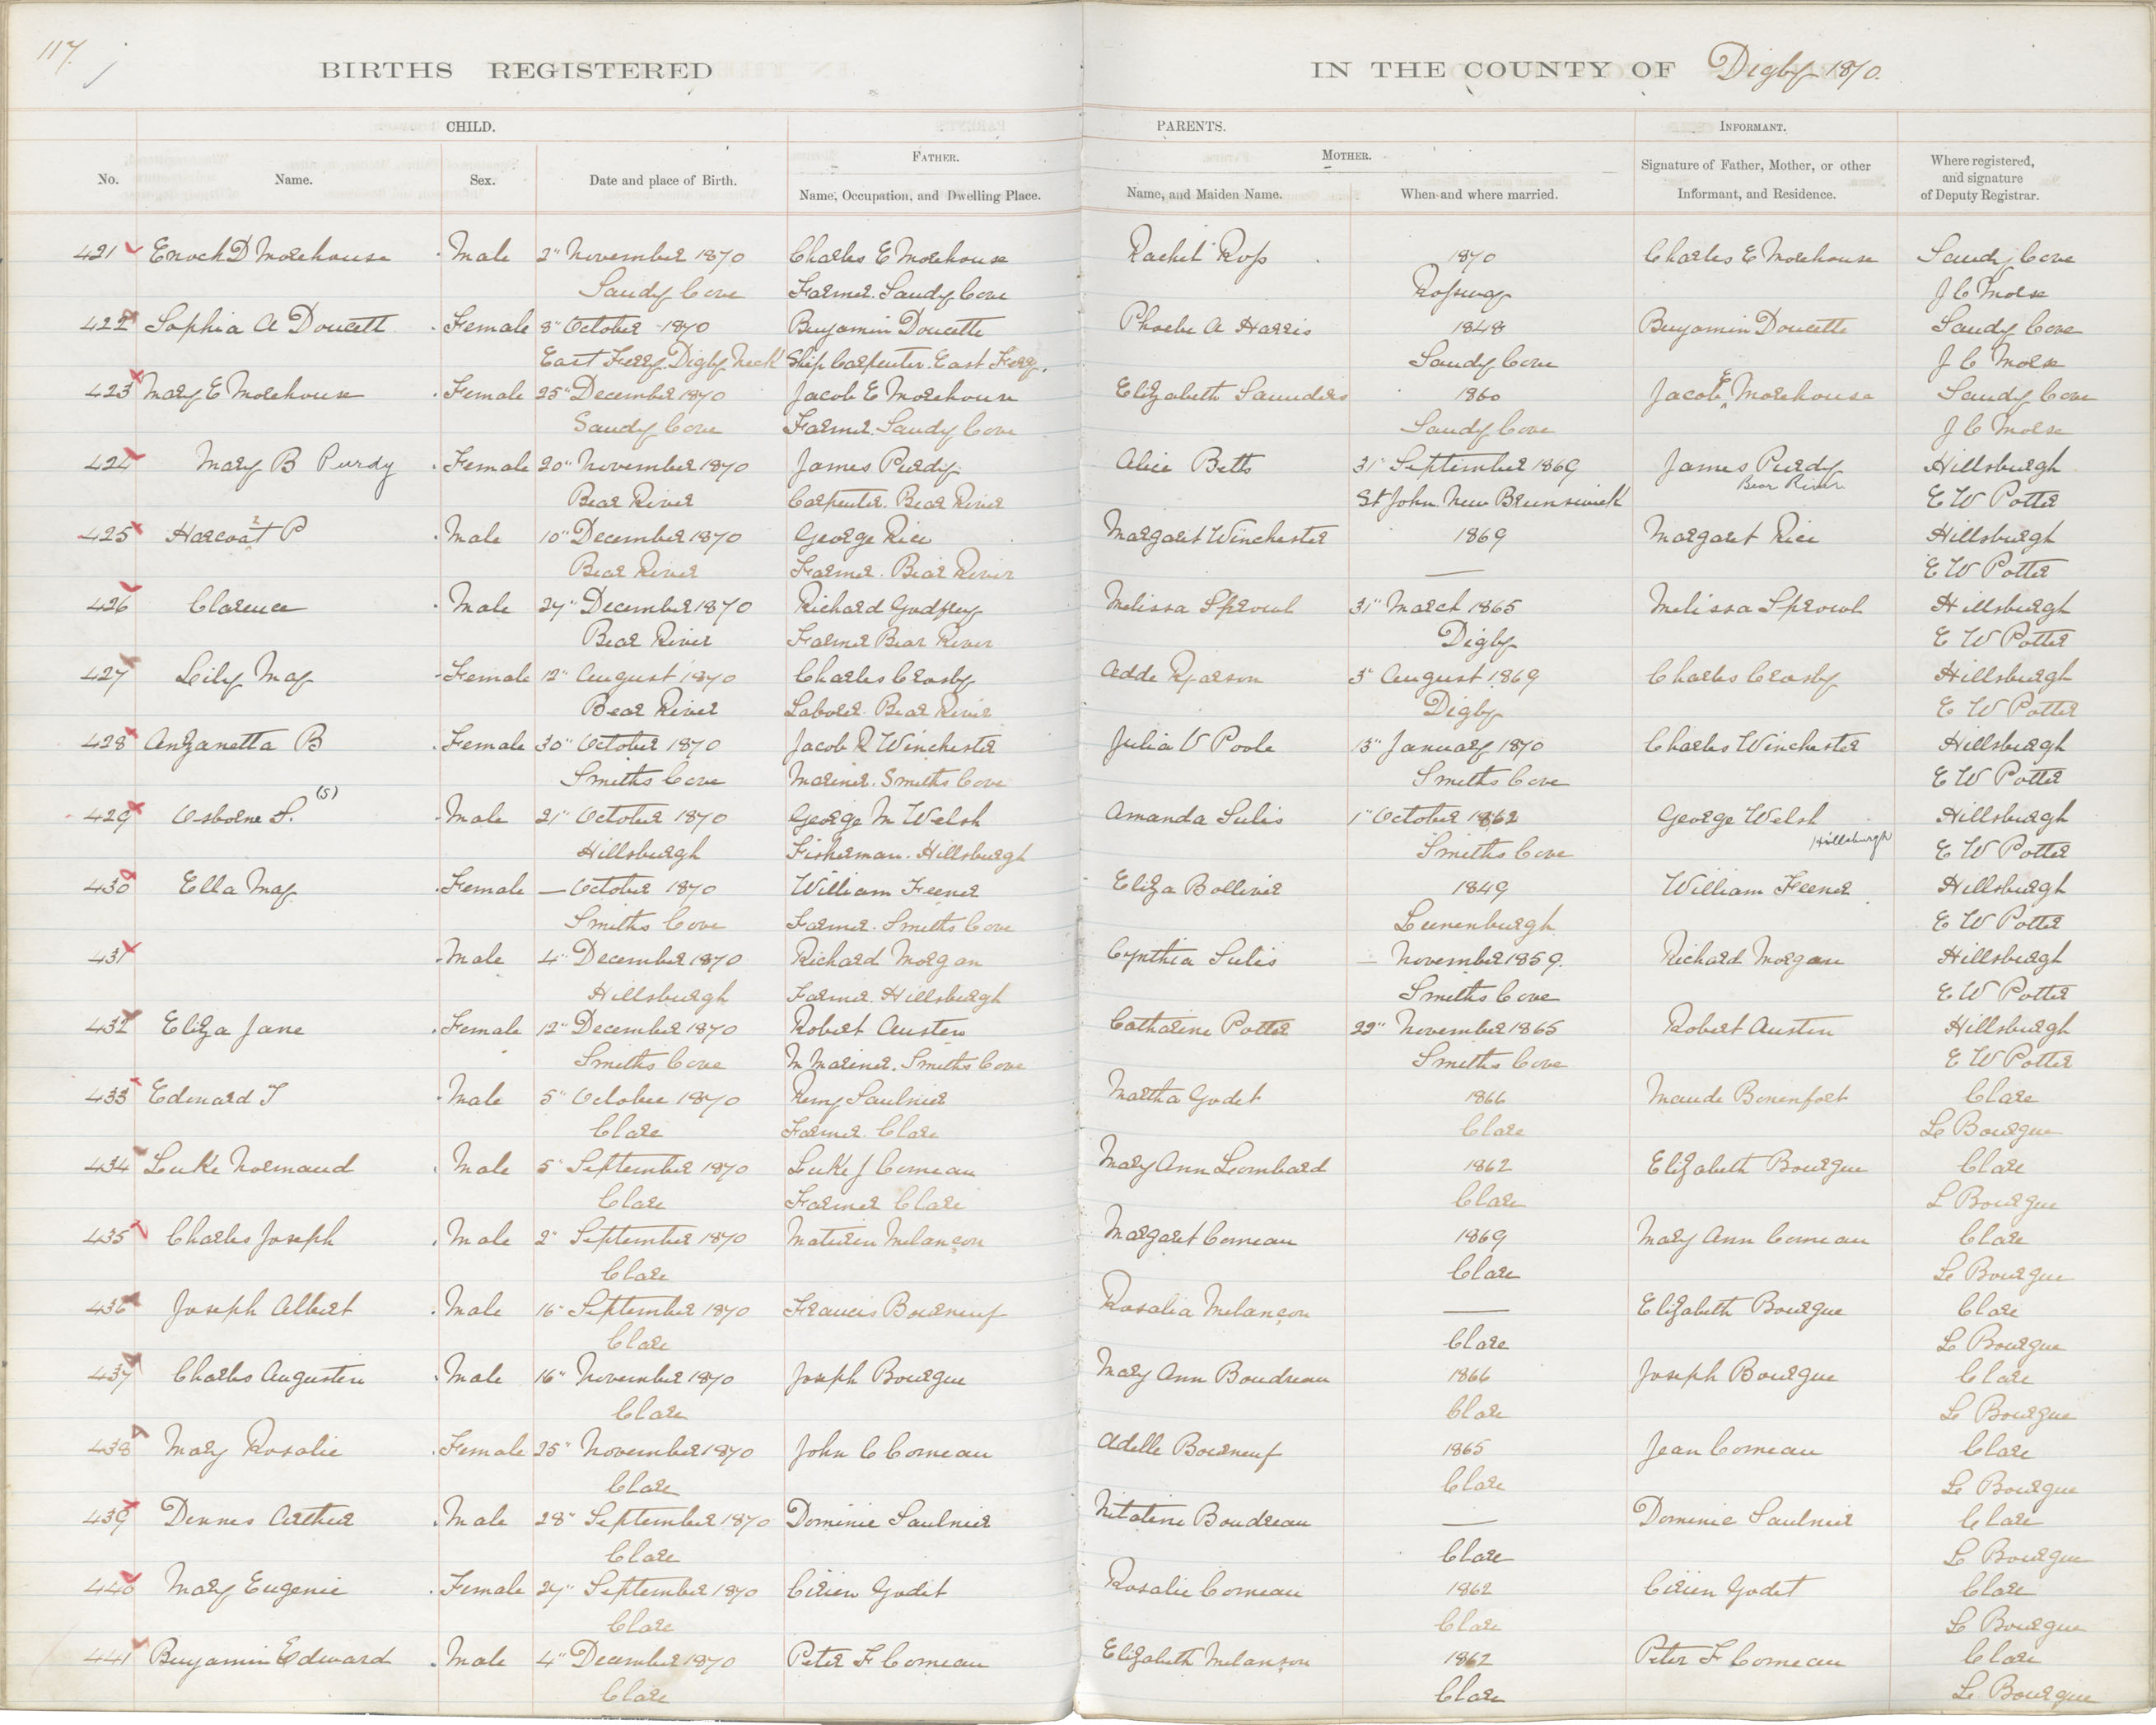 117.
BIRTHS REGISTERED IN THE COUNTY OF Digby 1870.
CHILD. PARENTS. INFORMANT.
No. Name. Sex. Date and place of Birth. FATHER. Name, Occupation, and Dwelling Place. MOTHER. Name, and Maiden Name. When and where married. Signature of Father, Mother, or other Informant, and Residence. Where registered, and signature of Deputy Registrar.
421 Enoch D Morehouse Male 2" November 1870 Charles E Morehouse Rachel Ross 1870 Charles E Morehouse Sandy Cove
Sandy Cove Farmer. Sandy Cove Rossway J C Morse
422 Sophia A Doucett Female 8" October 1870 Benjamin Doucette Phoebe A Harris 1848 Benjamin Doucette Sandy Cove
East Ferry Digby Neck Ship Carpenter. East Ferry. Sandy Cove J C Morse
423 Mary E Morehouse Female 25" December 1870 Jacob E Morehouse Elizabeth Saunders 1860 Jacob E Morehouse Sandy Cove
Sandy Cove Farmer. Sandy Cove Sandy Cove J C Morse
424 Mary B Purdy Female 20" November 1870 James Purdy Alice Betts 31" September 1869 James Purdy Hillsburgh
Bear River Carpenter. Bear River St John. New Brunswick Bear River E W Potter
425 Harcoat P Male 10" December 1870 George Rice Margaret Winchester 1869 Margaret Rice Hillsburgh
Bear River Farmer. Bear River — E W Potter
426 Clarence Male 27" December 1870 Richard Godfrey Melissa Sproul 31" March 1865 Melissa Sproul Hillsburgh
Bear River Farmer Bear River Digby E W Potter
427 Lily May Female 12" August 1870 Charles Crosby Adde 3" August 1869 Charles Crosby Hillsburgh
Bear River Laborer. Bear River Digby E W Potter
428 Anzanetta B Female 30" October 1870 Jacob R Winchester Julia V Poole 13" January 1870 Charles Winchester Hillsburgh
Smiths Cove Mariner. Smiths Cove Smiths Cove E W Potter
429 Osborne S. (S) Male 21" October 1870 George M Welsh Amanda Sulis 1" October 1862 George Welsh Hillsburgh
Hillsburgh Fisherman. Hillsburgh Smiths Cove Hillsburgh E W Potter
430 Ella May Female — October 1870 William Feener Eliza Bolliver 1849 William Feener Hillsburgh
Smiths Cove Farmer. Smiths Cove Lunenburgh E W Potter
431 Male 4" December 1870 Richard Morgan Cynthia Sulis — November 1859. Richard Morgan Hillsburgh
Hillsburgh Farmer. Hillsburgh Smiths Cove E W Potter
432 Eliza Jane Female 12" December 1870 Robert Austen Catharine Potter 22" November 1865 Robert Austen Hillsburgh
Smiths Cove M Mariner. Smiths Cove Smiths Cove E W Potter
433 Edward T Male 5" October 1870 Remy Saulnier Martha Godet 1866 Maude Bonenfort Clare
Clare Farmer. Clare Clare Le Bourque
434 Luke Normand Male 5" September 1870 Luke J Comeau Mary Ann Lombard 1862 Elizabeth Bourque Clare
Clare Farmer Clare Clare L Bourque
435 Charles Joseph Male 2" September 1870 Maturin Melançon Margaret Comeau 1869 Mary Ann Comeau Clare
Clare Clare Le Bourque
436 Joseph Albert Male 16" September 1870 Francis Bourneuf Rosalia Melançon — Elizabeth Bourque Clare
Clare Clare Le Bourque
437 Charles Augusten Male 16" November 1870 Joseph Bourque Mary Ann Boudreau 1866 Joseph Bourque Clare
Clare Clare Le Bourque
438 Mary Rosalie Female 25" November 1870 John C Comeau Adelle Bourneuf 1865 Jean Comeau Clare
Clare Clare Le Bourque
439 Dennes Arthur Male 28" September 1870 Dominic Saulnier Nitaline Boudreau — Dominic Saulnier Clare
Clare Clare Le Bourque
440 Mary Eugenie Female 27" September 1870 Cirien Godet Rosalie Comeau 1862 Cirien Godet Clare
Clare Clare Le Bourque
441 Benjamin Edward Male 4" December 1870 Peter F Comeau Elizabeth Melançon 1862 Peter F Comeau Clare
Clare Clare Le Bourque